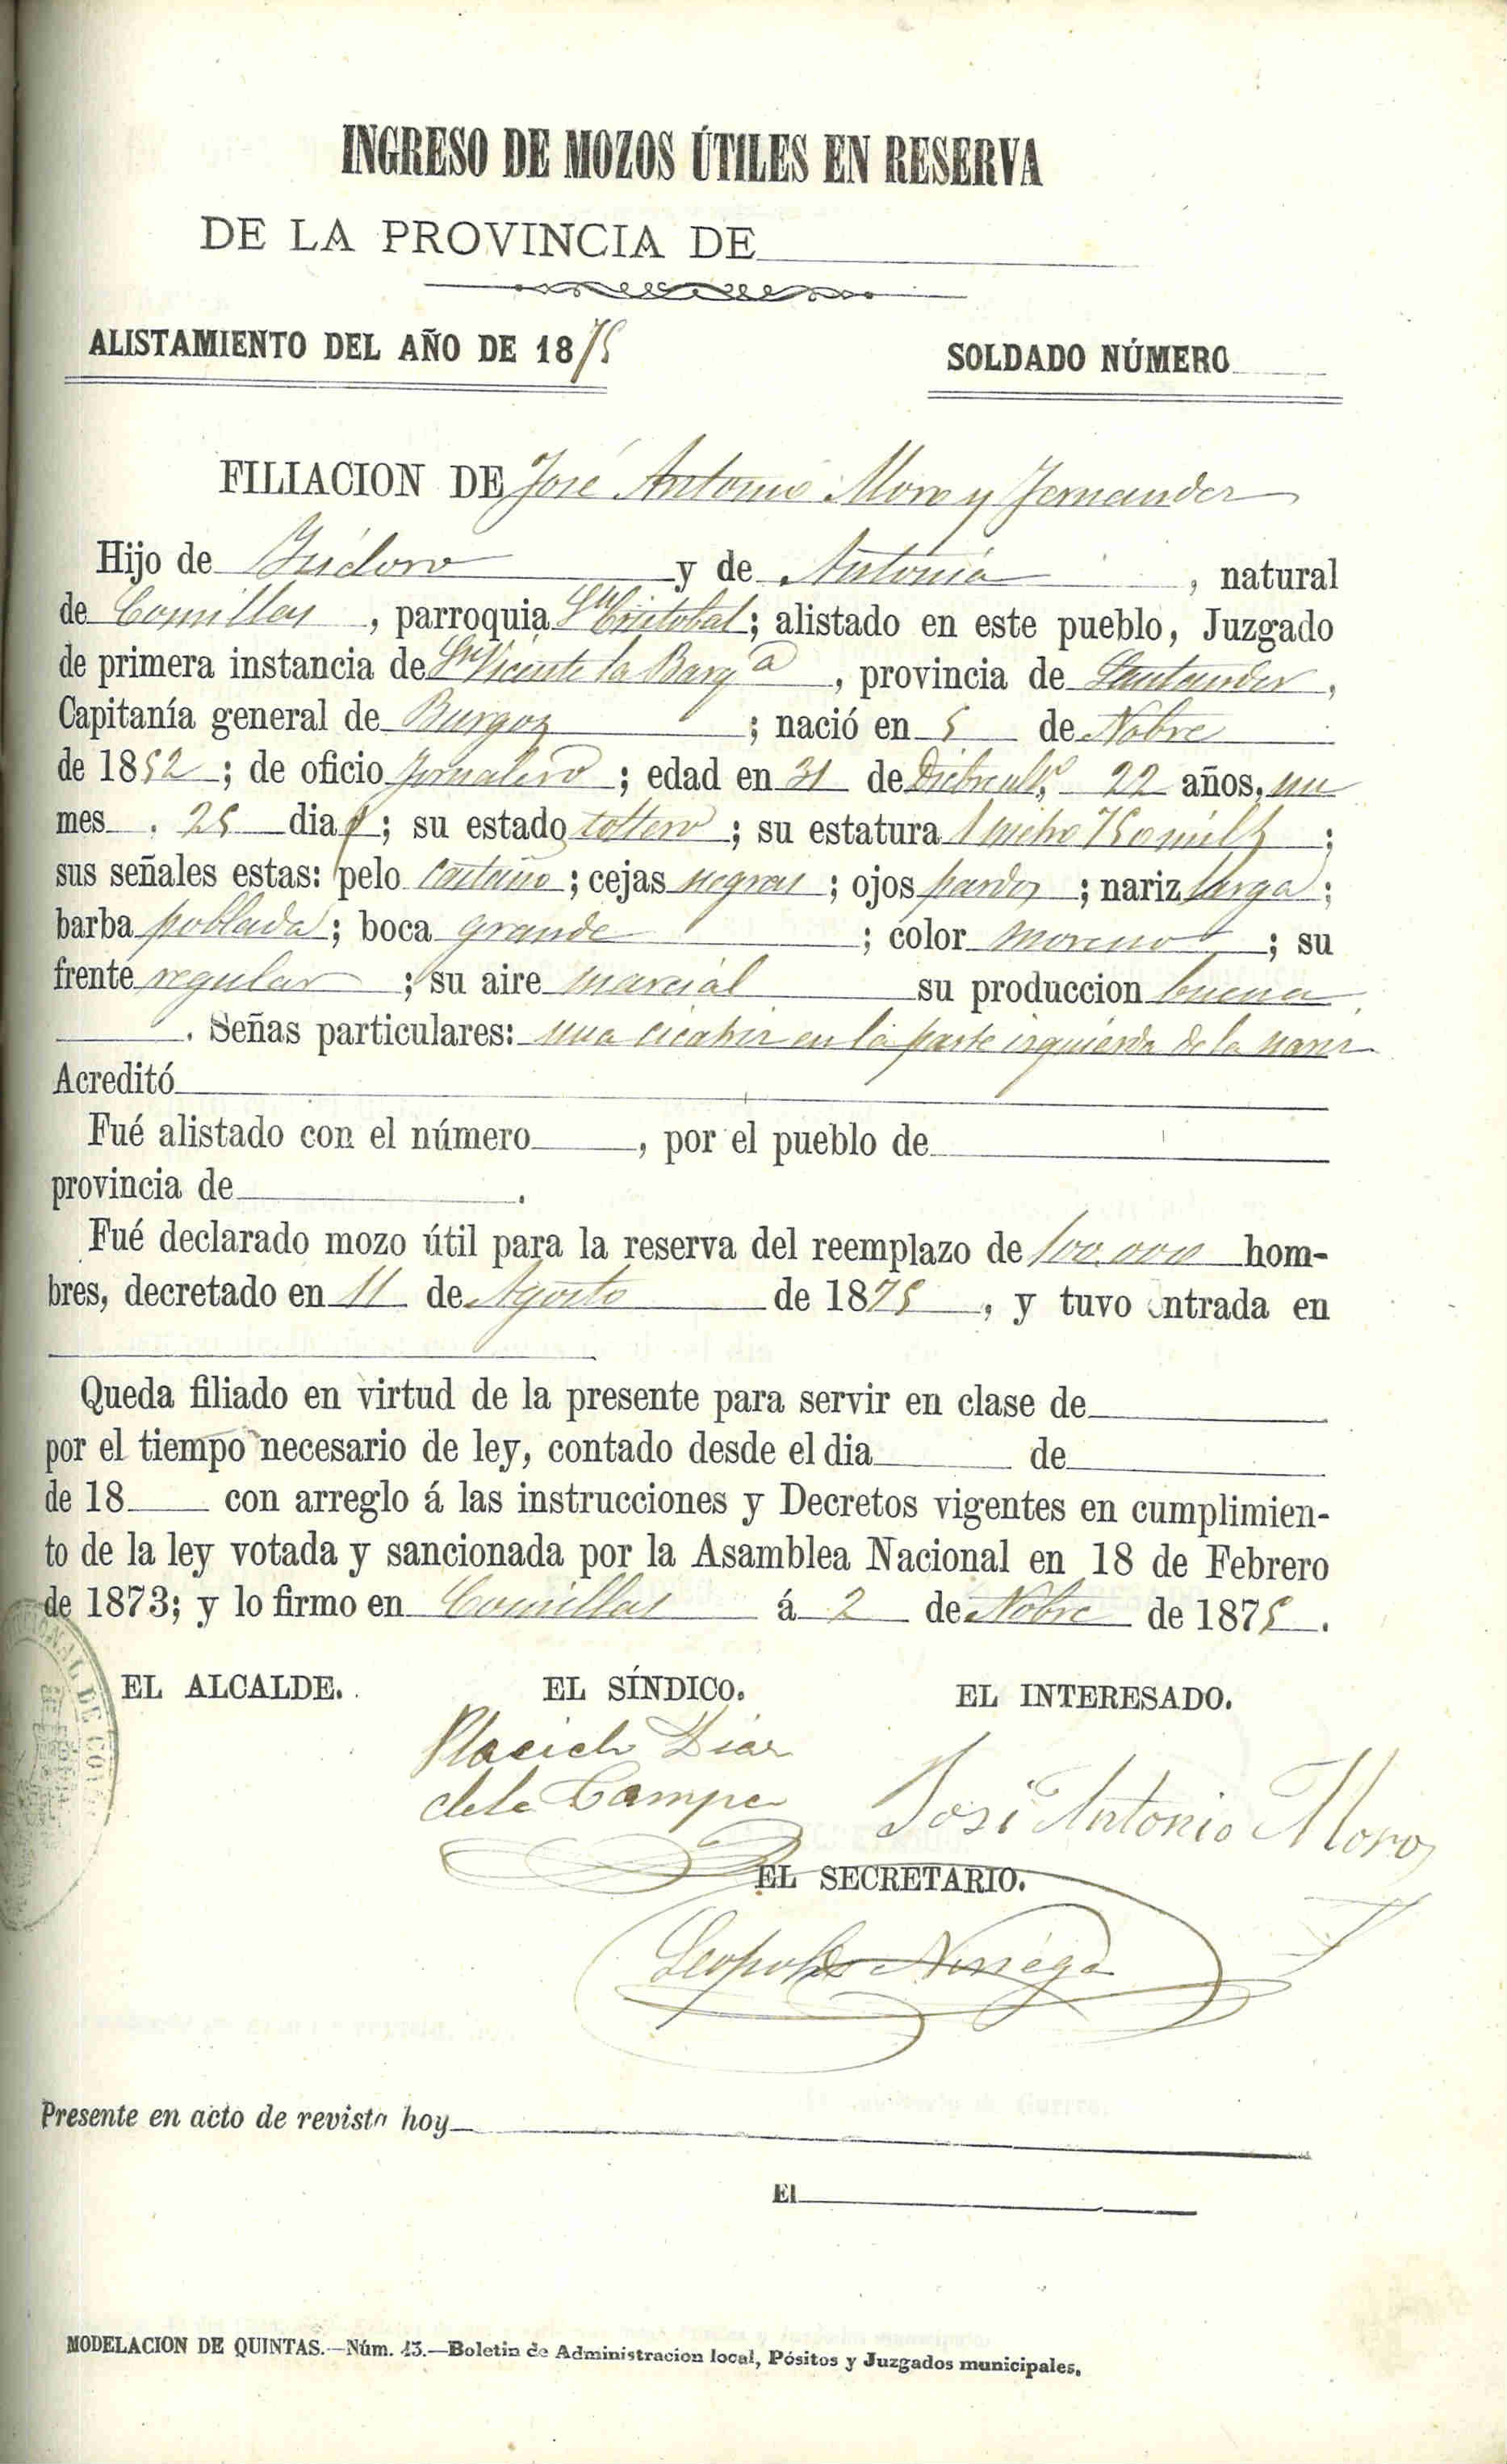 INGRESO DE MOZOS ÚTILES EN RESERVA
DE LA PROVINCIA DE
ALISTAMIENTO DEL AÑO DE 1875
SOLDADO NÚMERO
FILIACION DE José Antonio Moro y Fernandez
Hijo de Ysidoro y de Antonia , natural
de Comillas , parroquia Sn Cristobal; alistado en este pueblo, Juzgado
de primera instancia de Sn Vicente la Barqa , provincia de Santander ,
Capitanía general de Burgos ; nació en 5 de Nobre
de 1852 ; de oficio Jornalero ; edad en 31 de Dicbre 22 años, un
mes , 25 dias ; su estado soltero ; su estatura 1 metro milts ;
sus señales estas: pelo castaño ; cejas negras ; ojos pardos ; nariz larga ;
barba poblada ; boca grande ; color moreno ; su
frente regular ; su aire marcial su produccion buena
. Señas particulares: una cicatriz en la parte izquierda de la nariz
Acreditó
Fué alistado con el número , por el pueblo de
provincia de .
Fué declarado mozo útil para la reserva del reemplazo de 100.000 hom-
bres, decretado en 11 de Agosto de 1875 , y tuvo entrada en
Queda filiado en virtud de la presente para servir en clase de
por el tiempo necesario de ley, contado desde el dia de
de 18 con arreglo á las instrucciones y Decretos vigentes en cumplimien-
to de la ley votada y sancionada por la Asamblea Nacional en 18 de Febrero
de 1873; y lo firmo en Comillas á 2 de Nobre de 1875 .
EL ALCALDE. EL SÍNDICO. EL INTERESADO.
Placido Diaz
de la Campa
José Antonio Moro
EL SECRETARIO.
Leopoldo Noriega
Presente en acto de revista hoy
El
MODELACION DE QUINTAS.—Núm. 13.—Boletin de Administracion local, Pósitos y Juzgados municipales.